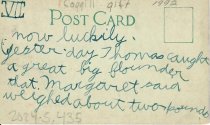 VI
gift
1992
POST CARD
now luckily.
Yester-day Thomas caught
a great big flounder
that Margaret said
weighed about two pounds